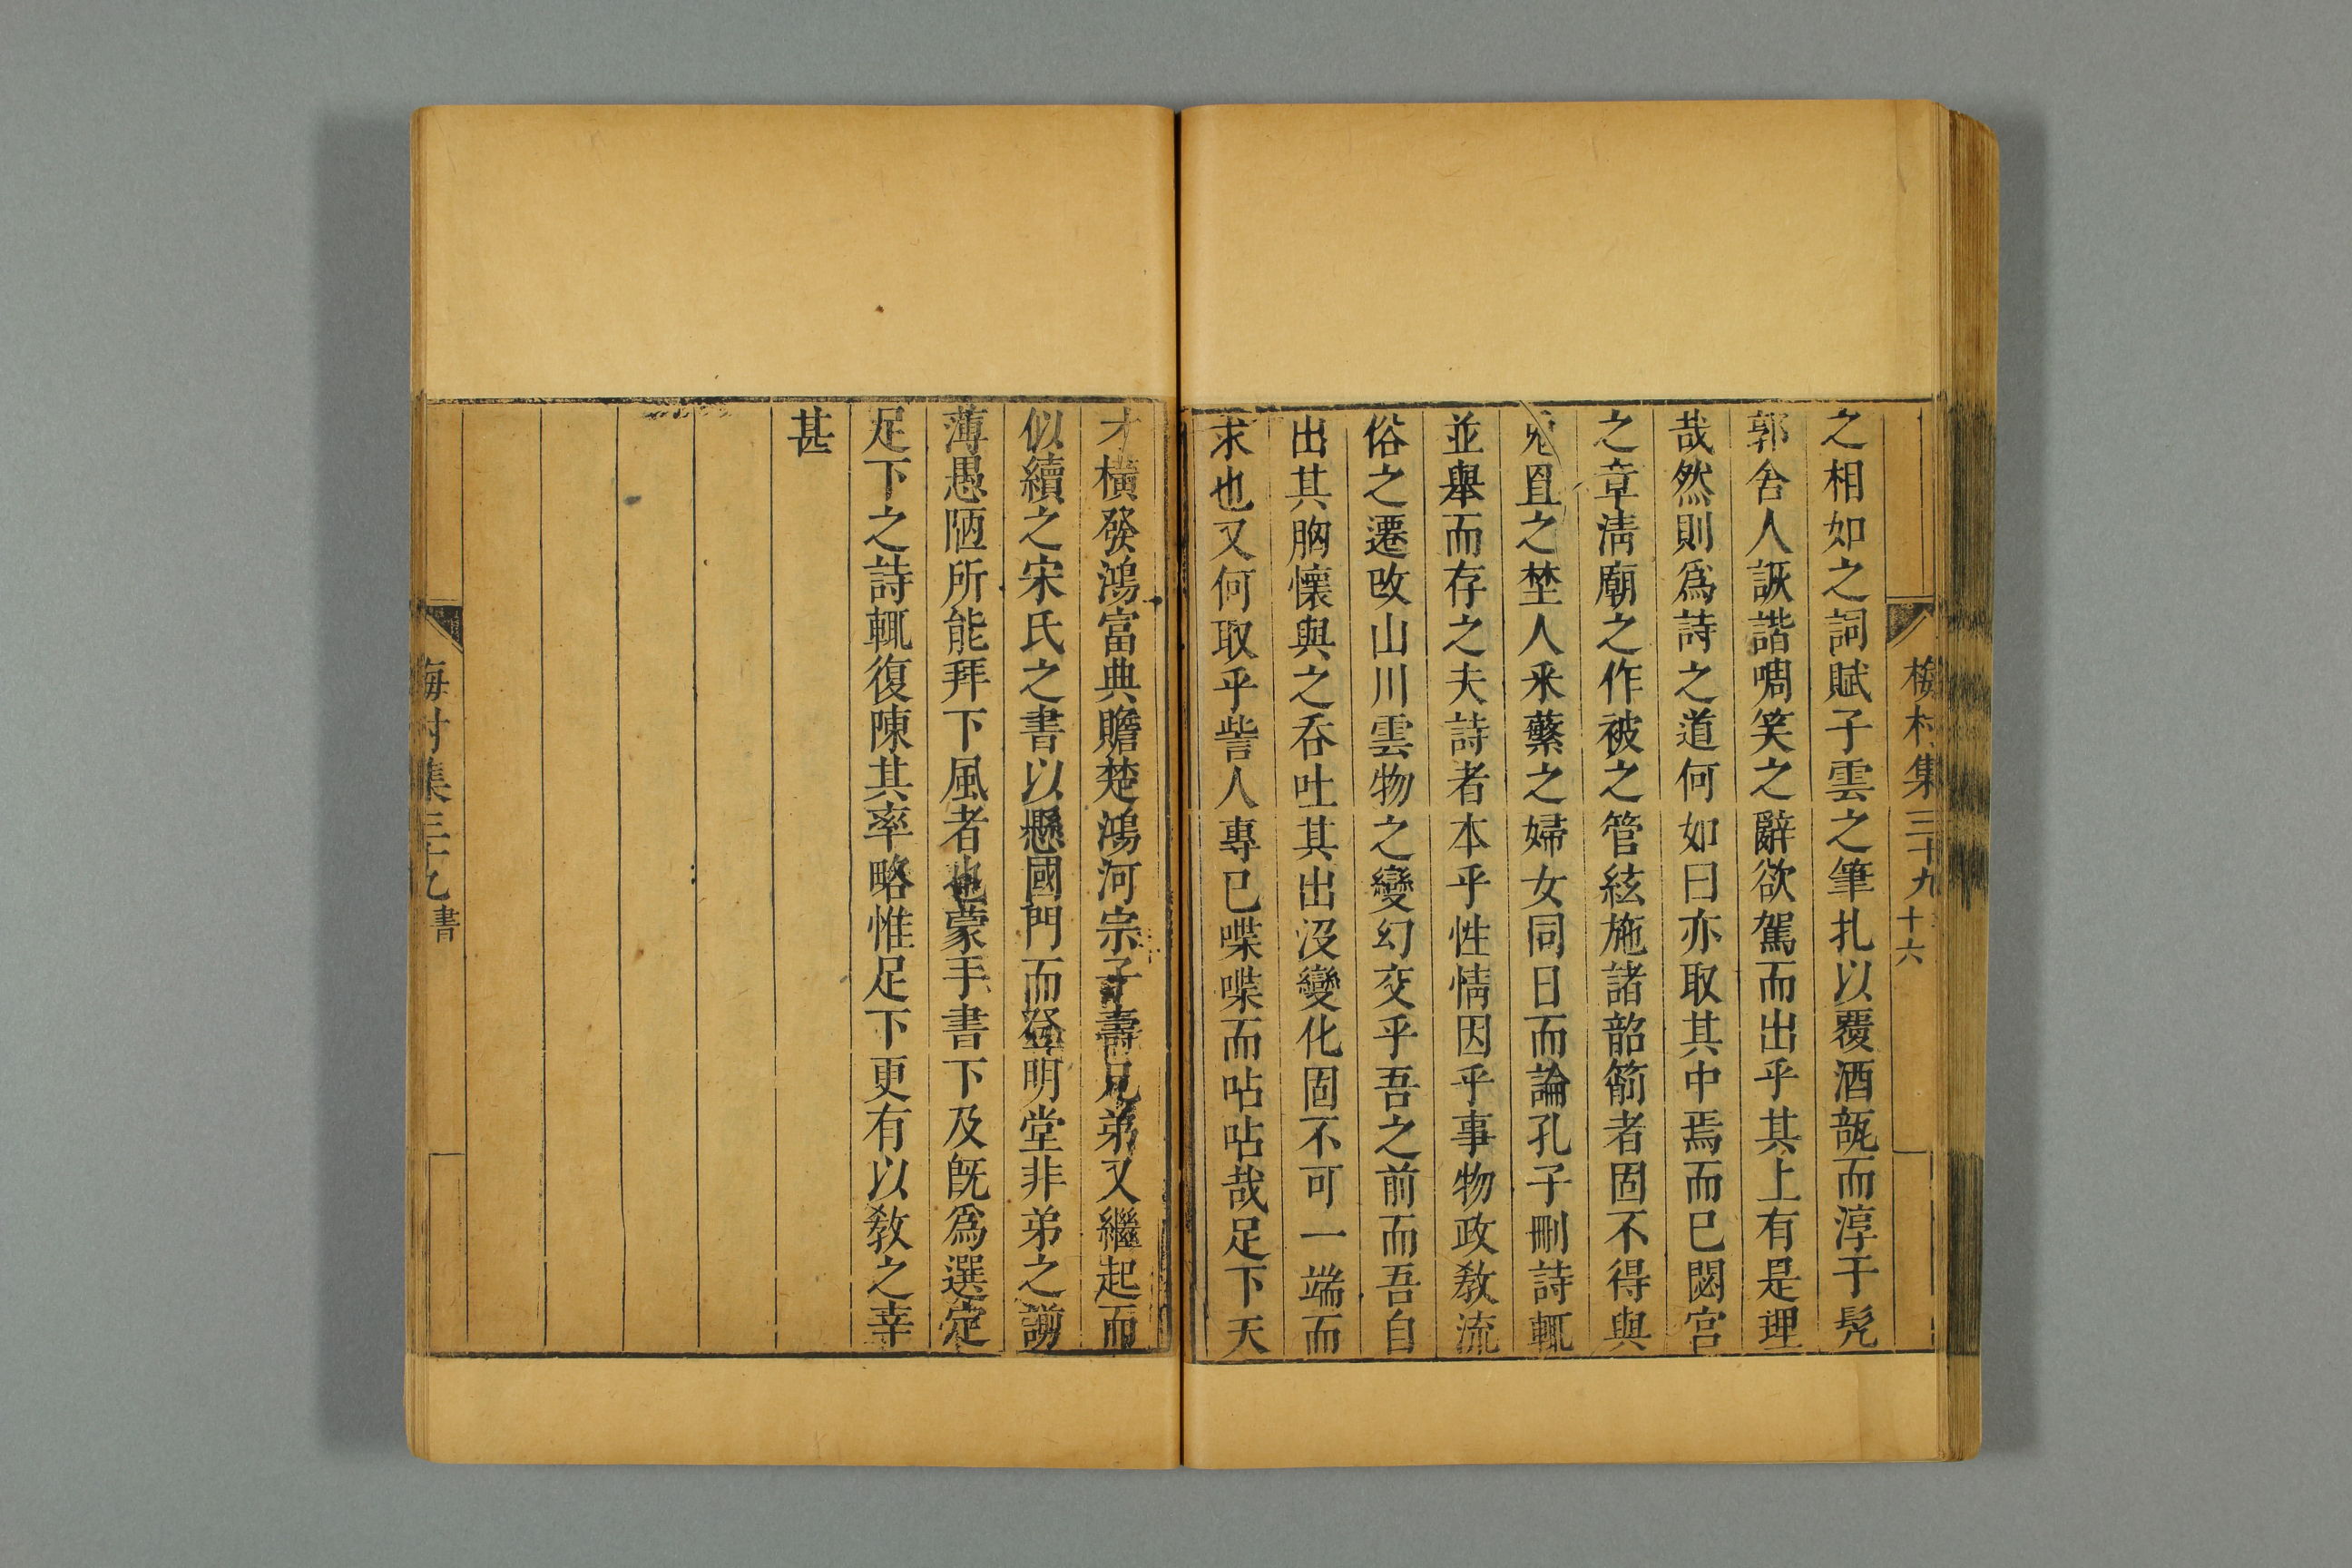 梅村集三十九
十六
之相如之詞賦子雲之筆扎以覆酒瓿而淳于髡
郭舍人詼諧啁笑之辭欲駕而出乎其上有是理
哉然則爲詩之道何如曰亦取其中焉而已閟宫
之章淸廟之作被之管絃施諸韶箾者固不得與
兎罝之埜人采蘩之婦女同日而論孔子刪詩輒
並舉而存之夫詩者本乎性情因乎事物政教流
俗之遷改山川雲物之變幻交乎吾之前而吾自
出其胸懷與之吞吐其出沒變化固不可一端而
求也又何取乎訾人專已喋喋而呫呫哉足下天
才橫發鴻富典贍楚鴻河宗子壽兄弟又繼起而
似續之宋氏之書以懸國門而登明堂非弟之謭
薄愚陋所能拜下風者也蒙手書下及旣爲選定
足下之詩輒復陳其率略惟足下更有以教之幸
甚
梅村集三十九
書